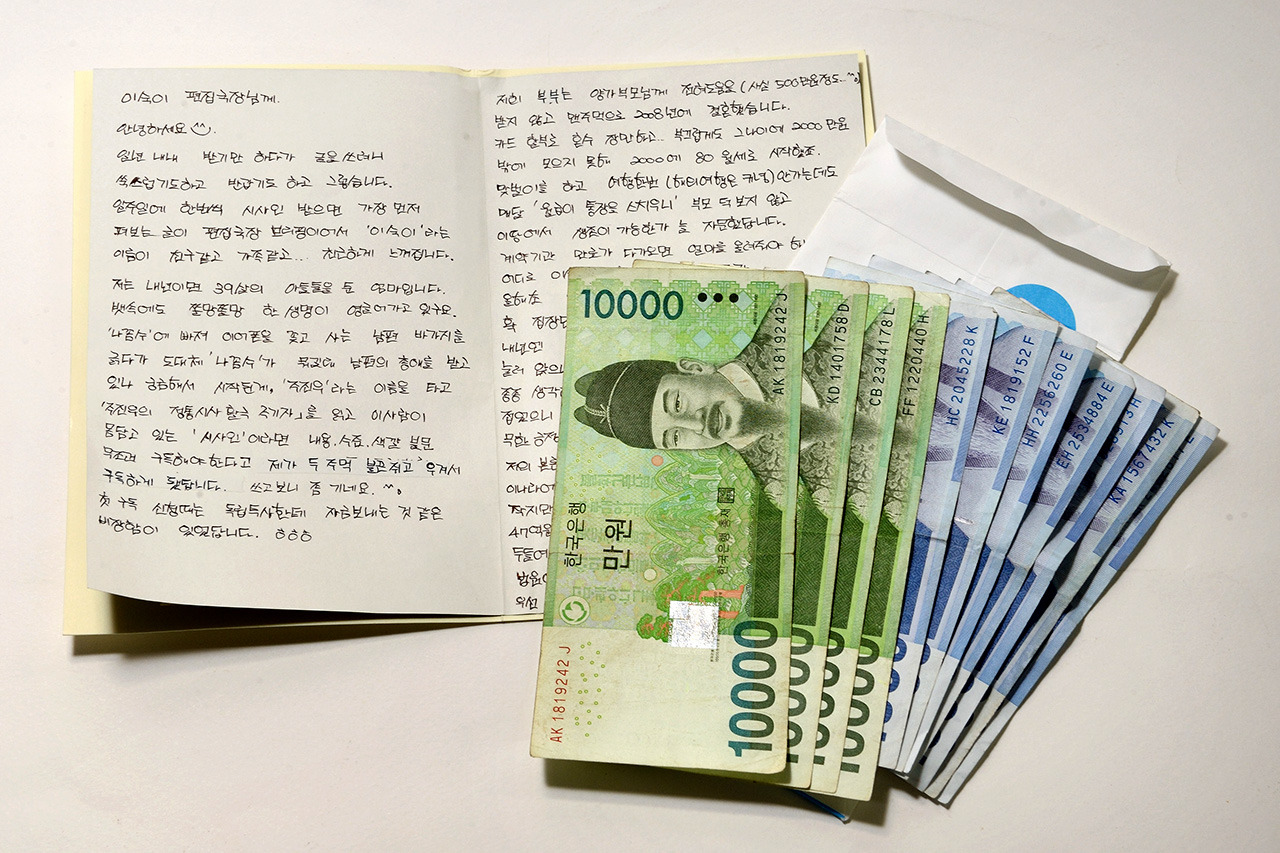 이숙이 편집국장님께.
안녕하세요
일년 내내 받기만 하다가 글을 쓰려니
쑥쓰럽기도하고 반갑기도 하고 그렇습니다.
일주일에 한번씩 시사인 받으면 가장 먼저
펴보는 글이 편집국장 브리핑이어서 '이숙이'라는
이름이 친구같고 가족같고... 친근하게 느껴집니다.
저는 내년이면 39살의 아들둘을 둔 엄마입니다.
뱃속에도 쫄망쫄망 한 생명이 영글어가고 있구요.
'나꼼수'에 빠져 이어폰을 꽂고 사는 남편 바가지를
긁다가 도대체 '나꼼수'가 뭐길래 남편의 총애를 받고
있나 궁금해서 시작된게, '주진우'라는 이름을 타고
「주진우의 정통시사 활극 주기자」를 읽고 이사람이
몸담고 있는 '시사인'이라면 내용.수준.색깔 불문
무조건 구독해야한다고 제가 두 주먹 불끈쥐고 우겨서
구독하게 됐답니다. 쓰고보니 좀 기네요. ^^;
첫 구독 신청때는 독립투사한테 자금보내는 것 같은
비장함이 있었답니다. ㅎㅎㅎ
저희 부부는 양가부모님께 전혀도움을 (사실 500만원정도..^^;)
받지 않고 맨주먹으로 2008년에 결혼했습니다.
카드 할부로 혼수 장만하고... 부끄럽게도 그나이에 2000만원
밖에 모으지 못해 2000에 80 월세로 시작했죠.
맞벌이를 하고 여행한번 (해외여행은 커녕) 안가는데도
매달 '월급이 통장을 스치우니' 부모 덕 보지 않고
이땅에서 생존이 가능한가 늘 자문했답니다.
계약기간 만료가 다가오면 얼마를 올려줘야 하
어디로 이
올해초
확 집장만
내년엔
눌러 앉으
종종 생각
집있으니
무한 긍정
저의 본
이나라에
작지만
47억원
두돌에
법원에
우선
10000
AK1819242J
한국은행
만원
한국은행 총재
AK1819242J
10000
KD1401758D
10000
CB2344178L
10000
FF1220440H
10000
HC2045228K
KE1819152F
HH2256260E
EH2534884E
KA1567432K